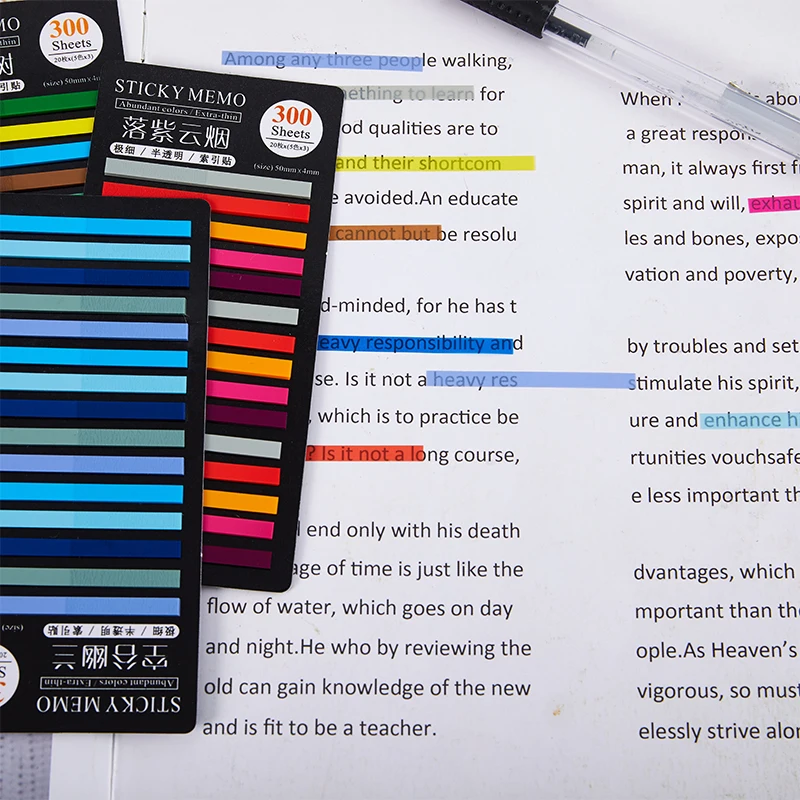 300
Sheets
20枚x(5色x3)
(size) 50mm
STICKY MEMO
Abundant colors / Extra-thin
落紫云烟
极细 / 半透明 / 索引贴
300
Sheets
20枚x(5色x3)
(size) 50mmx4mm
STICKY MEMO
Abundant colors / Extra-thin
空谷幽兰
极细 / 半透明 / 索引贴
(size)
Among any three people walking,
to learn for
qualities are to
and their shortcom
avoided.An educate
cannot but be resolu
d-minded, for he has t
heavy responsibility and
se. Is it not a heavy res
, which is to practice be
? Is it not a long course,
end only with his death
age of time is just like the
flow of water, which goes on day
and night.He who by reviewing the
old can gain knowledge of the new
and is fit to be a teacher.
When
a great respon
man, it always first f
spirit and will, exhau
les and bones, expo
vation and poverty,
by troubles and set
stimulate his spirit,
ure and enhance h
rtunities vouchsafe
e less important th
dvantages, which
mportant than the
ople.As Heaven's
vigorous, so must
elessly strive alon